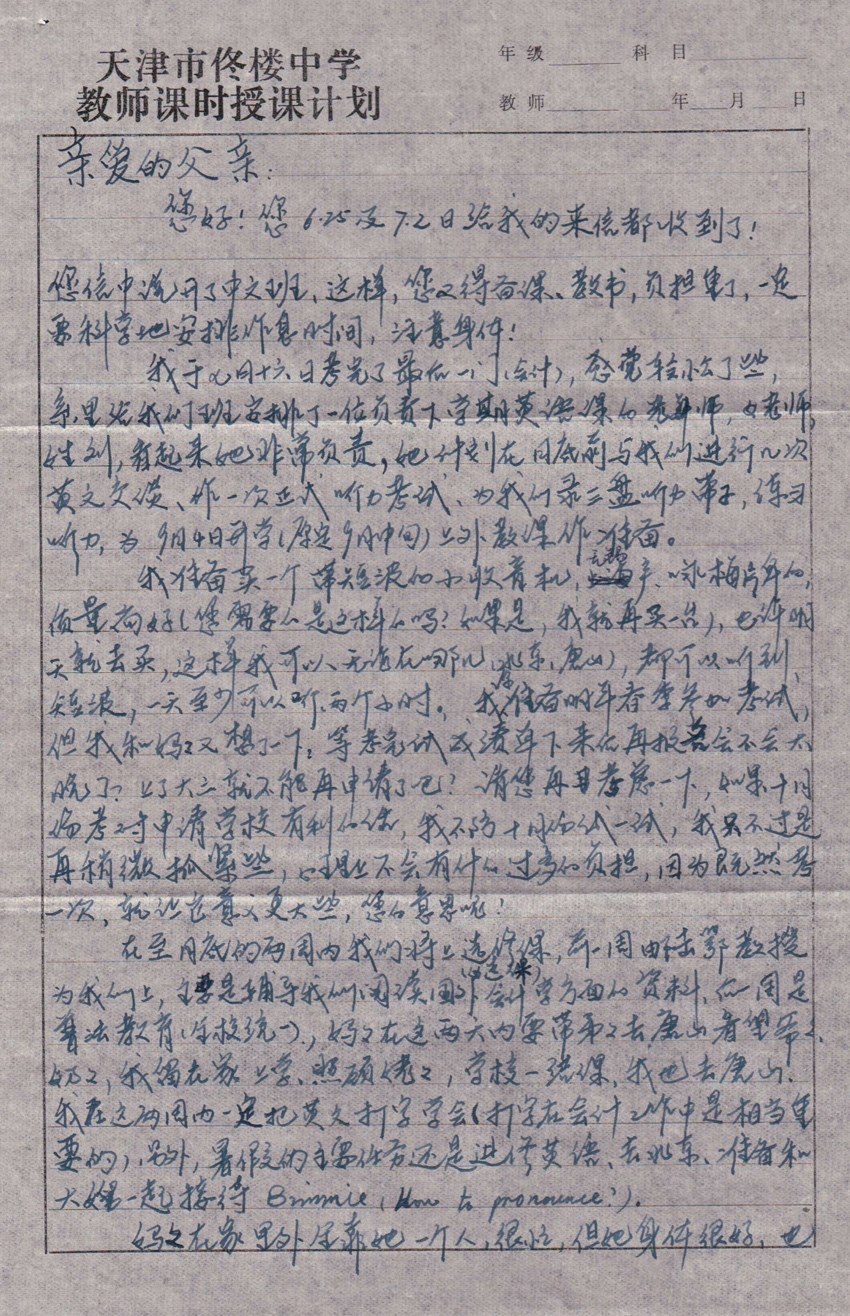 天津市佟楼中学
教师课时授课计划
年级 科目
教师 年 月 日
亲爱的父亲:
您好!您6.25及7.2日给我的来信都收到了!
您信中说开了中文班,这样,您又得备课、教书,负担重了,一定
要科学地安排作息时间,注意身体!
我于七月十六日考完了最后一门(会计),感觉轻松了些,
系里给我们班安排了一位负责下学期英语课的老师,女老师,
姓刘,看起来她非常负责,她计划在月底前与我们进行几次
英文交谈、作一次正式听力考试、为我们录三盘听力带子,练习
听力,为9月4日开学(原定9月中旬)上外教课作准备。
我准备买一个带短波的小收音机,无锡产、咏梅牌的,
质量尚好(您需要的是这样的吗?如果是,我就再买一台),也许明
天就去买,这样我可以无论在哪儿(北京、唐山),都可以听到
短波,一天至少可以听两个小时。我准备明年春季参加考试,
但我和妈妈又想了一下:等考完试成绩单下来后再报名会不会太
晚了?上了大三就不能再申请了吧?请您再考虑一下,如果十月
份考对申请学校有利的话,我不妨十月份试一试,我只不过是
再稍微抓紧些,心理上不会有什么过多的负担,因为既然考
一次,就让这意义更大些,您的意思呢?
在至月底的两周内我们将上选修课,前一周由陆鄂教授
为我们上,主要是辅导我们阅读国外会计学方面的资料,后一周是
普法教育(学校统一),妈妈在这两天内要带弟弟去唐山看望爷爷、
奶奶,我留在家上学、照顾姥姥,学校一结课,我也去唐山。
我在这两周内一定把英文打字学会(打字在会计工作中是相当重
要的),另外,暑假的主要任务还是进修英语、去北京、准备和
大姑一起接待 Binnie (How to pronounce?)。
妈妈在家里外全靠她一个人,很忙,但她身体很好,也